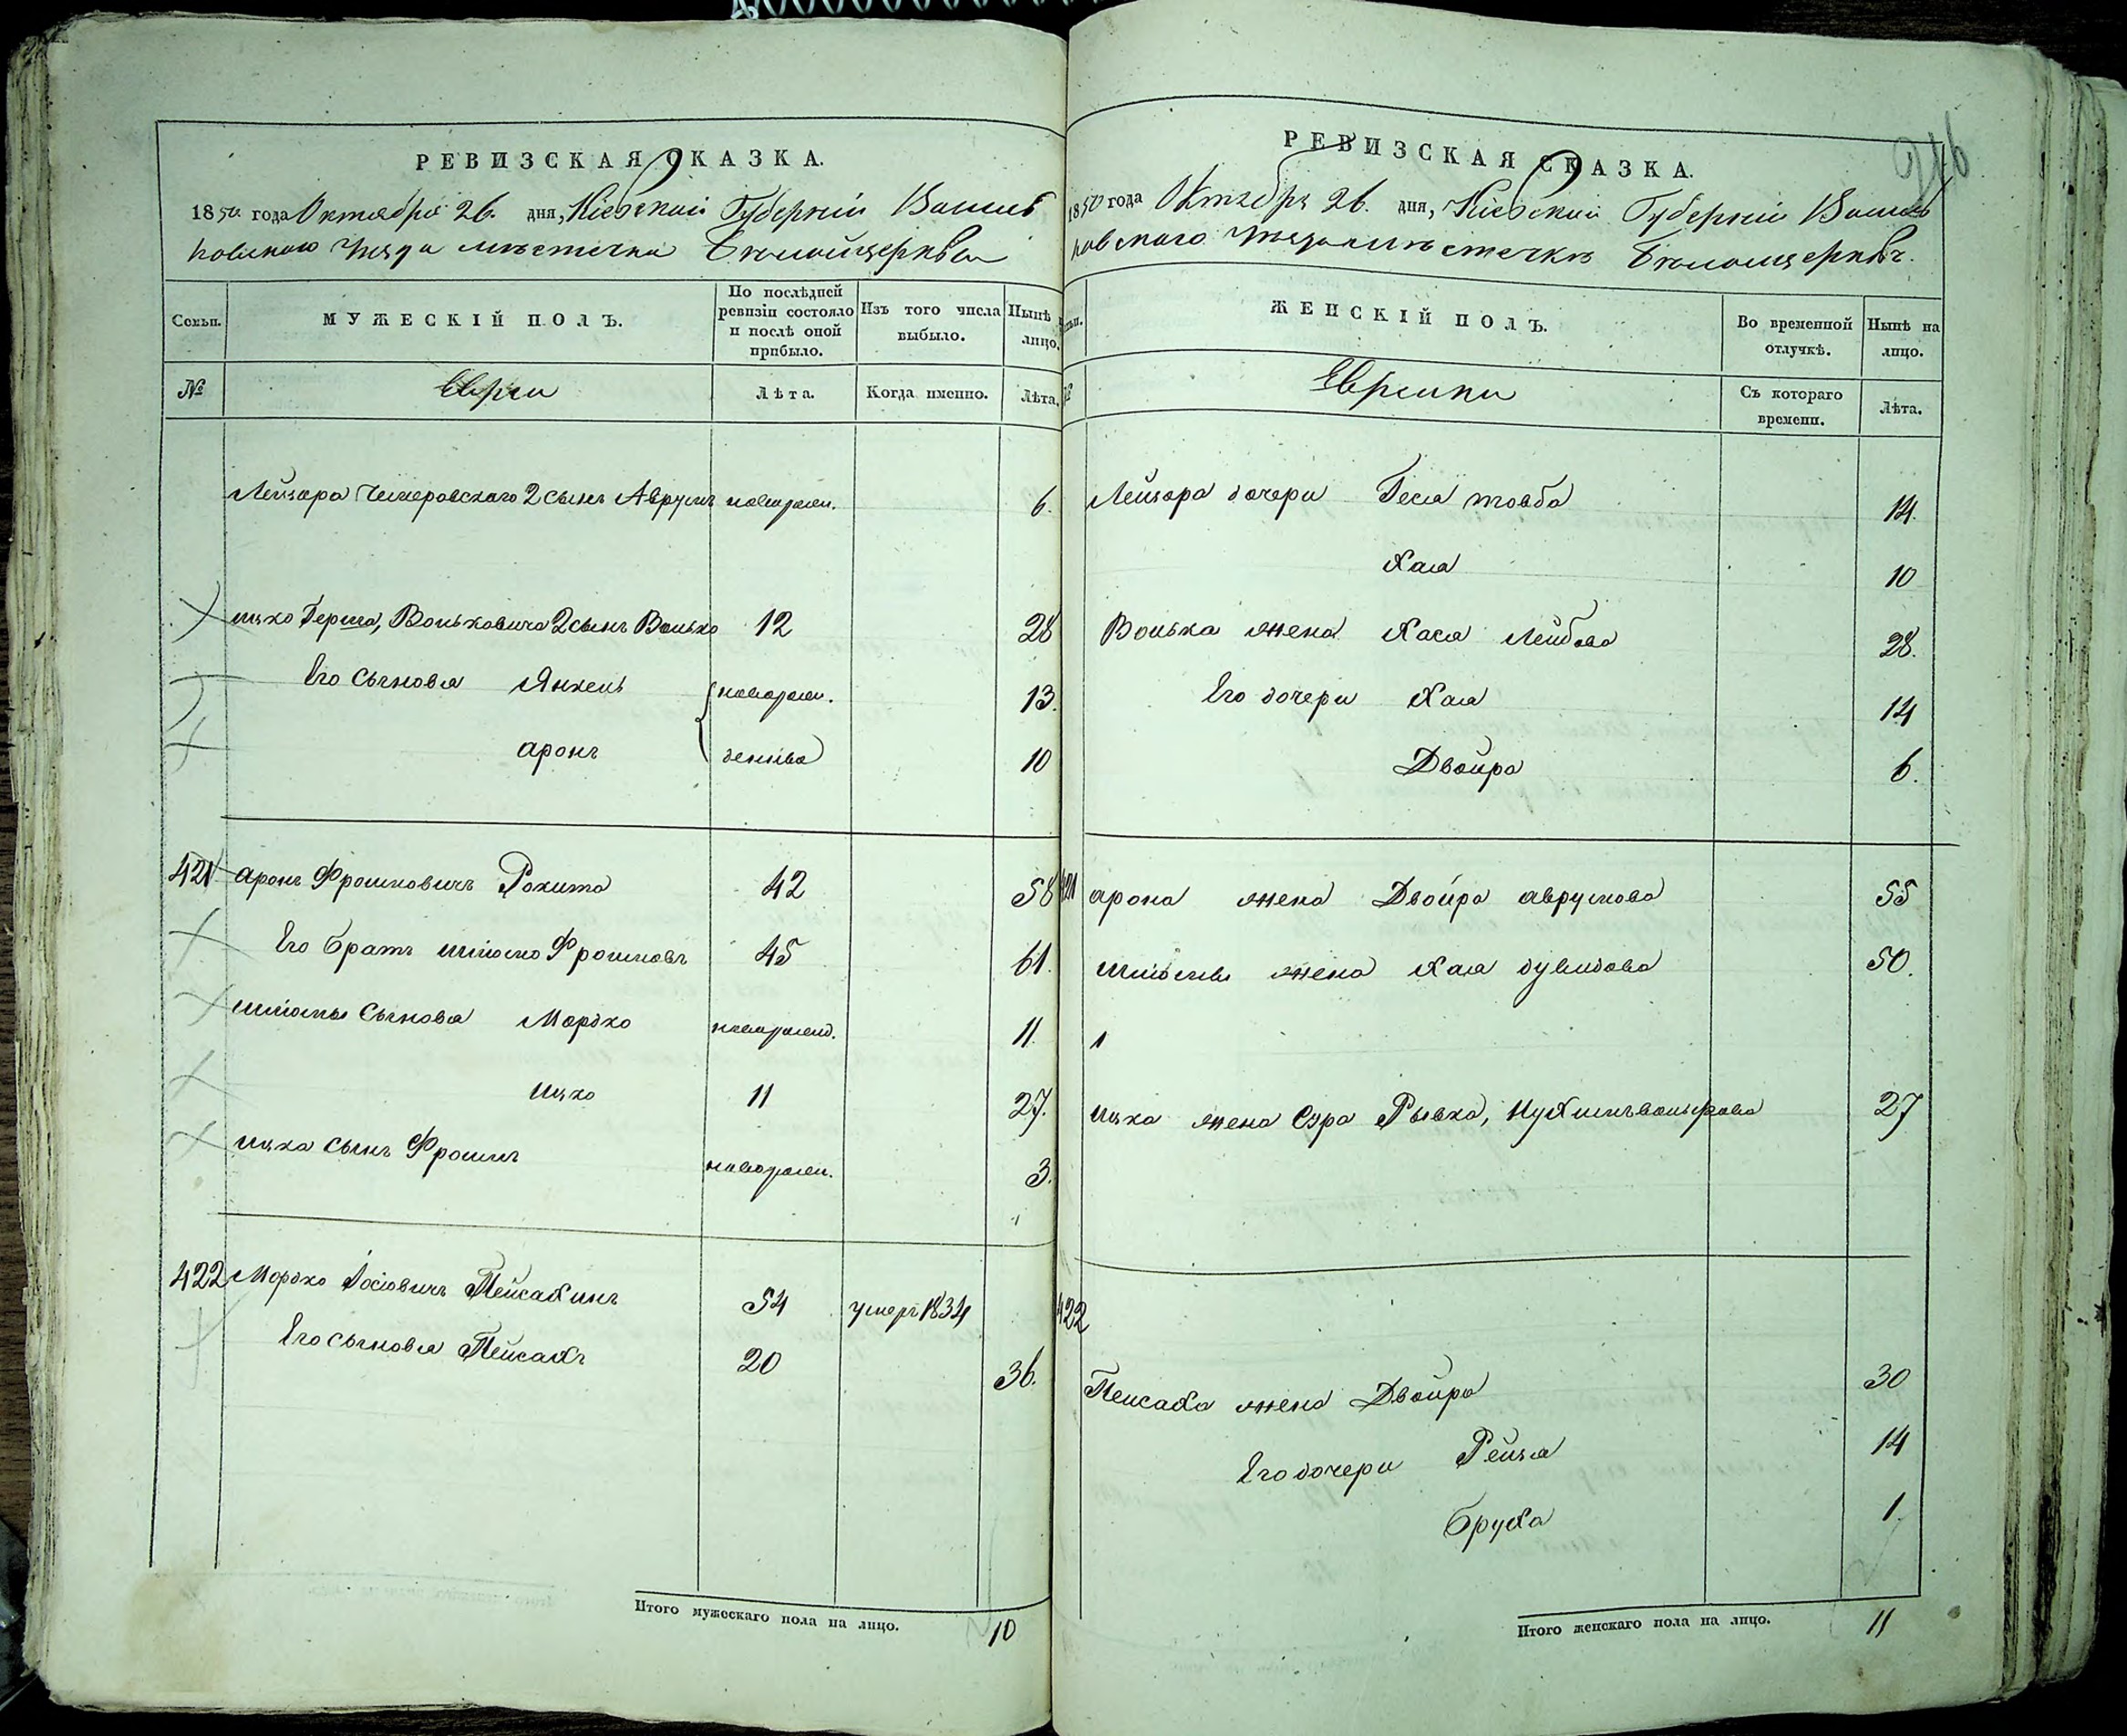 216
РЕВИЗСКАЯ СКАЗКА.
1850 года Октября 26. дня, Кіевской Губерніи Василь
ковскаго уезда местечка Белойцеркви
Семьи. МУЖЕСКІЙ ПОЛЪ. По послѣдней ревизіи состояло и послѣ оной прибыло. Изъ того числа выбыло. Нынѣ на лицо.
№ Евреи Лѣта. Когда именно. Лѣта.
Лейзора 2 сынъ Аврумъ новорожд. 6.
ицко Герша, Вольковича 2 сынъ Волько 12 28
Его Сыновья Янкель новорожд. 13.
аронъ денныя 10
421 аронъ Фроимовичъ Рокита 42 58
Его братъ шліомо Фроимовъ 45 61.
шліомы Сыновья Мордко новорожд. 11.
ицко 11 27.
ицка сынъ Фроимъ новорожд. 3.
422 Мордко Іосіовичъ Пейсахинъ 54 умеръ 1834
Его сыновья Пейсахъ 20 36.
Итого мужескаго пола на лицо. 10
РЕВИЗСКАЯ СКАЗКА.
1850 года Октября 26. дня, Кіевской Губерніи Василь
ковскаго уезда местечка Белойцеркви.
ЖЕНСКІЙ ПОЛЪ. Во временной отлучкѣ. Нынѣ на лицо.
№ Еврейки Съ котораго времени. Лѣта.
Лейзора дочери Бася товба 14.
Хая 10
Волька жена Хася Лейбова 28.
Его дочери Хая 14
Двойра 6.
421 арона жена Двойра аврумова 55
шліомы жена Хая дувидова 50.
ицка жена Сура Рывка, Нухимъвольфова 27
422
Пейсаха жена Двойра 30
Его дочери Рейзя 14
Бруха 1.
Итого женскаго пола на лицо. 11